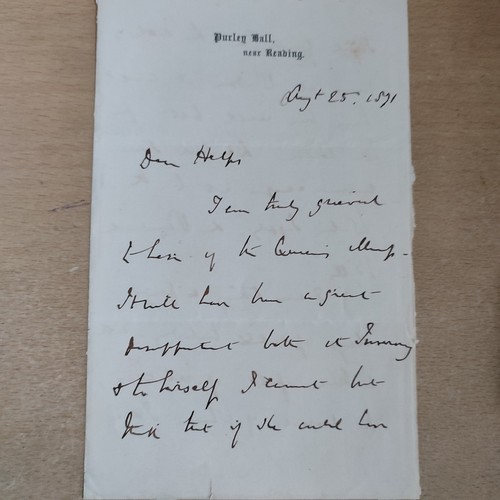 Purley Hall,
near Reading.
Augt 25. 1871
Dear Helps
I am truly grieved
to hear of the Queen's illness -
It will have been a great
disappointment both at Inverary
& to herself I cannot but
think that if she could have